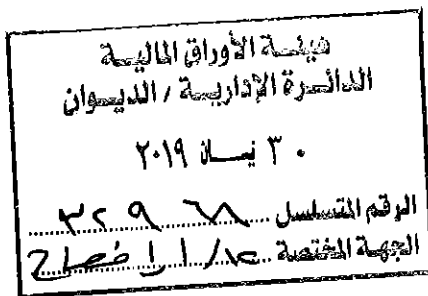 هيئة الأوراق المالية
الدائرة الإدارية / الديوان
٣٠ نيسان ٢٠١٩
الرقم المتسلسل ٣٢٩٦٨
الجهة المختصة الإفصاح